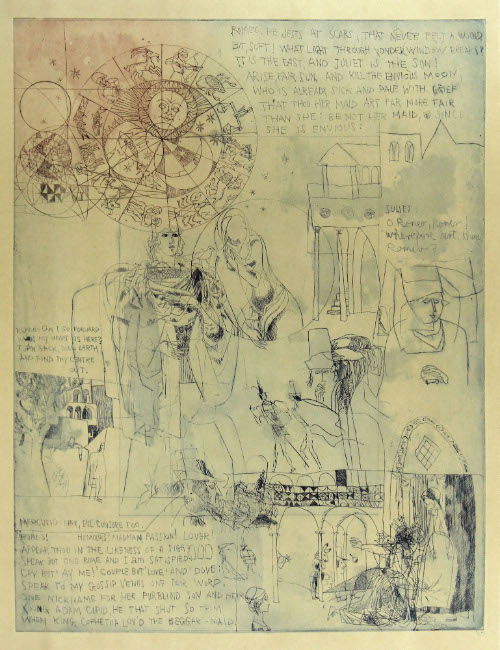 ROMEO: HE JESTS AT SCARS, THAT NEVER FELT A WOUND
BUT, SOFT! WHAT LIGHT THROUGH YONDER WINDOW BREAKS?
IT IS THE EAST, AND JULIET IS THE SUN!
ARISE, FAIR SUN, AND KILL THE ENVIOUS MOON,
WHO IS ALREADY SICK AND PALE WITH GRIEF
THAT THOU HER MAID ART FAR MORE FAIR
THAN SHE: BE NOT HER MAID, SINCE
SHE IS ENVIOUS:
JULIET:
O Romeo, Romeo!
wherefore art thou
Romeo?
ROMEO: CAN I GO FORWARD
WHEN MY HEART IS HERE?
TURN BACK, DULL EARTH
AND FIND THY CENTRE
OUT.
MERCUTIO: NAY, I'LL CONJURE TOO.
ROMEO! HUMOURS! MADMAN! PASSION! LOVER!
APPEAR THOU IN THE LIKENESS OF A SIGH
SPEAK BUT ONE RIME AND I AM SATISFIED
CRY BUT 'AY ME!' COUPLE BUT 'LOVE!' AND 'DOVE!'
SPEAK TO MY GOSSIP VENUS ONE FAIR WORD
ONE NICKNAME FOR HER PURBLIND SON AND HEIR
YOUNG ADAM CUPID HE THAT SHOT SO TRIM
WHEN KING COPHETUA LOV'D THE BEGGAR-MAID.